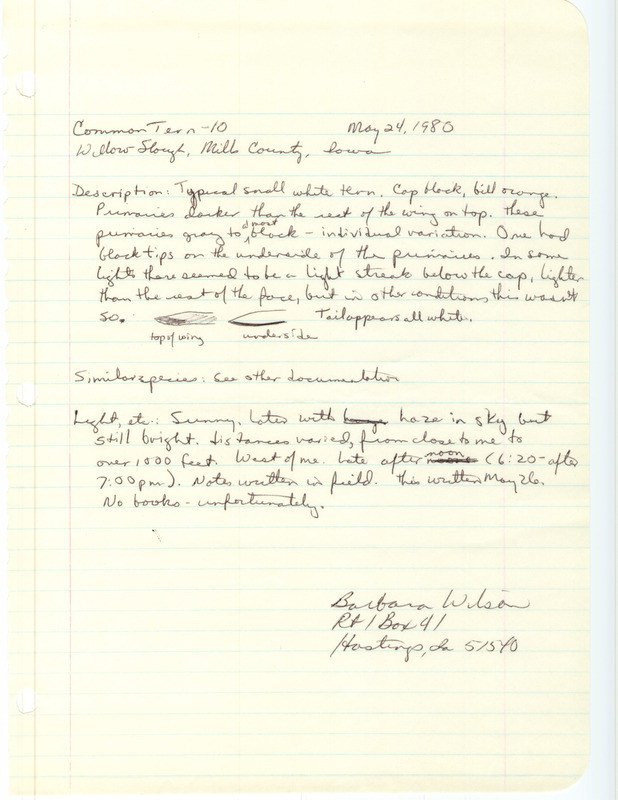 Common Tern - 10 May 24, 1980
Willow Slough, Mills County, Iowa
Description: Typical small white tern. Cap black, bill orange.
Primaries darker than the rest of the wing on top. These
primaries gray to almost black - individual variation. One had
black tips on the underside of the primaries. In some
lights there seemed to be a light streak below the cap, lighter
than the rest of the face, but in other conditions this wasn't
so. Tail appears all white.
top of wing underside
Similar species: See other documentation
Light, etc.: Sunny, later with haze in sky but
still bright. Distances varied, from close to me to
over 1000 feet. West of me. Late afternoon (6:20-after
7:00 pm). Notes written in field. This written May 26.
No books - unfortunately.
Barbara Wilson
Rt 1 Box 41
Hastings, Ia 51540